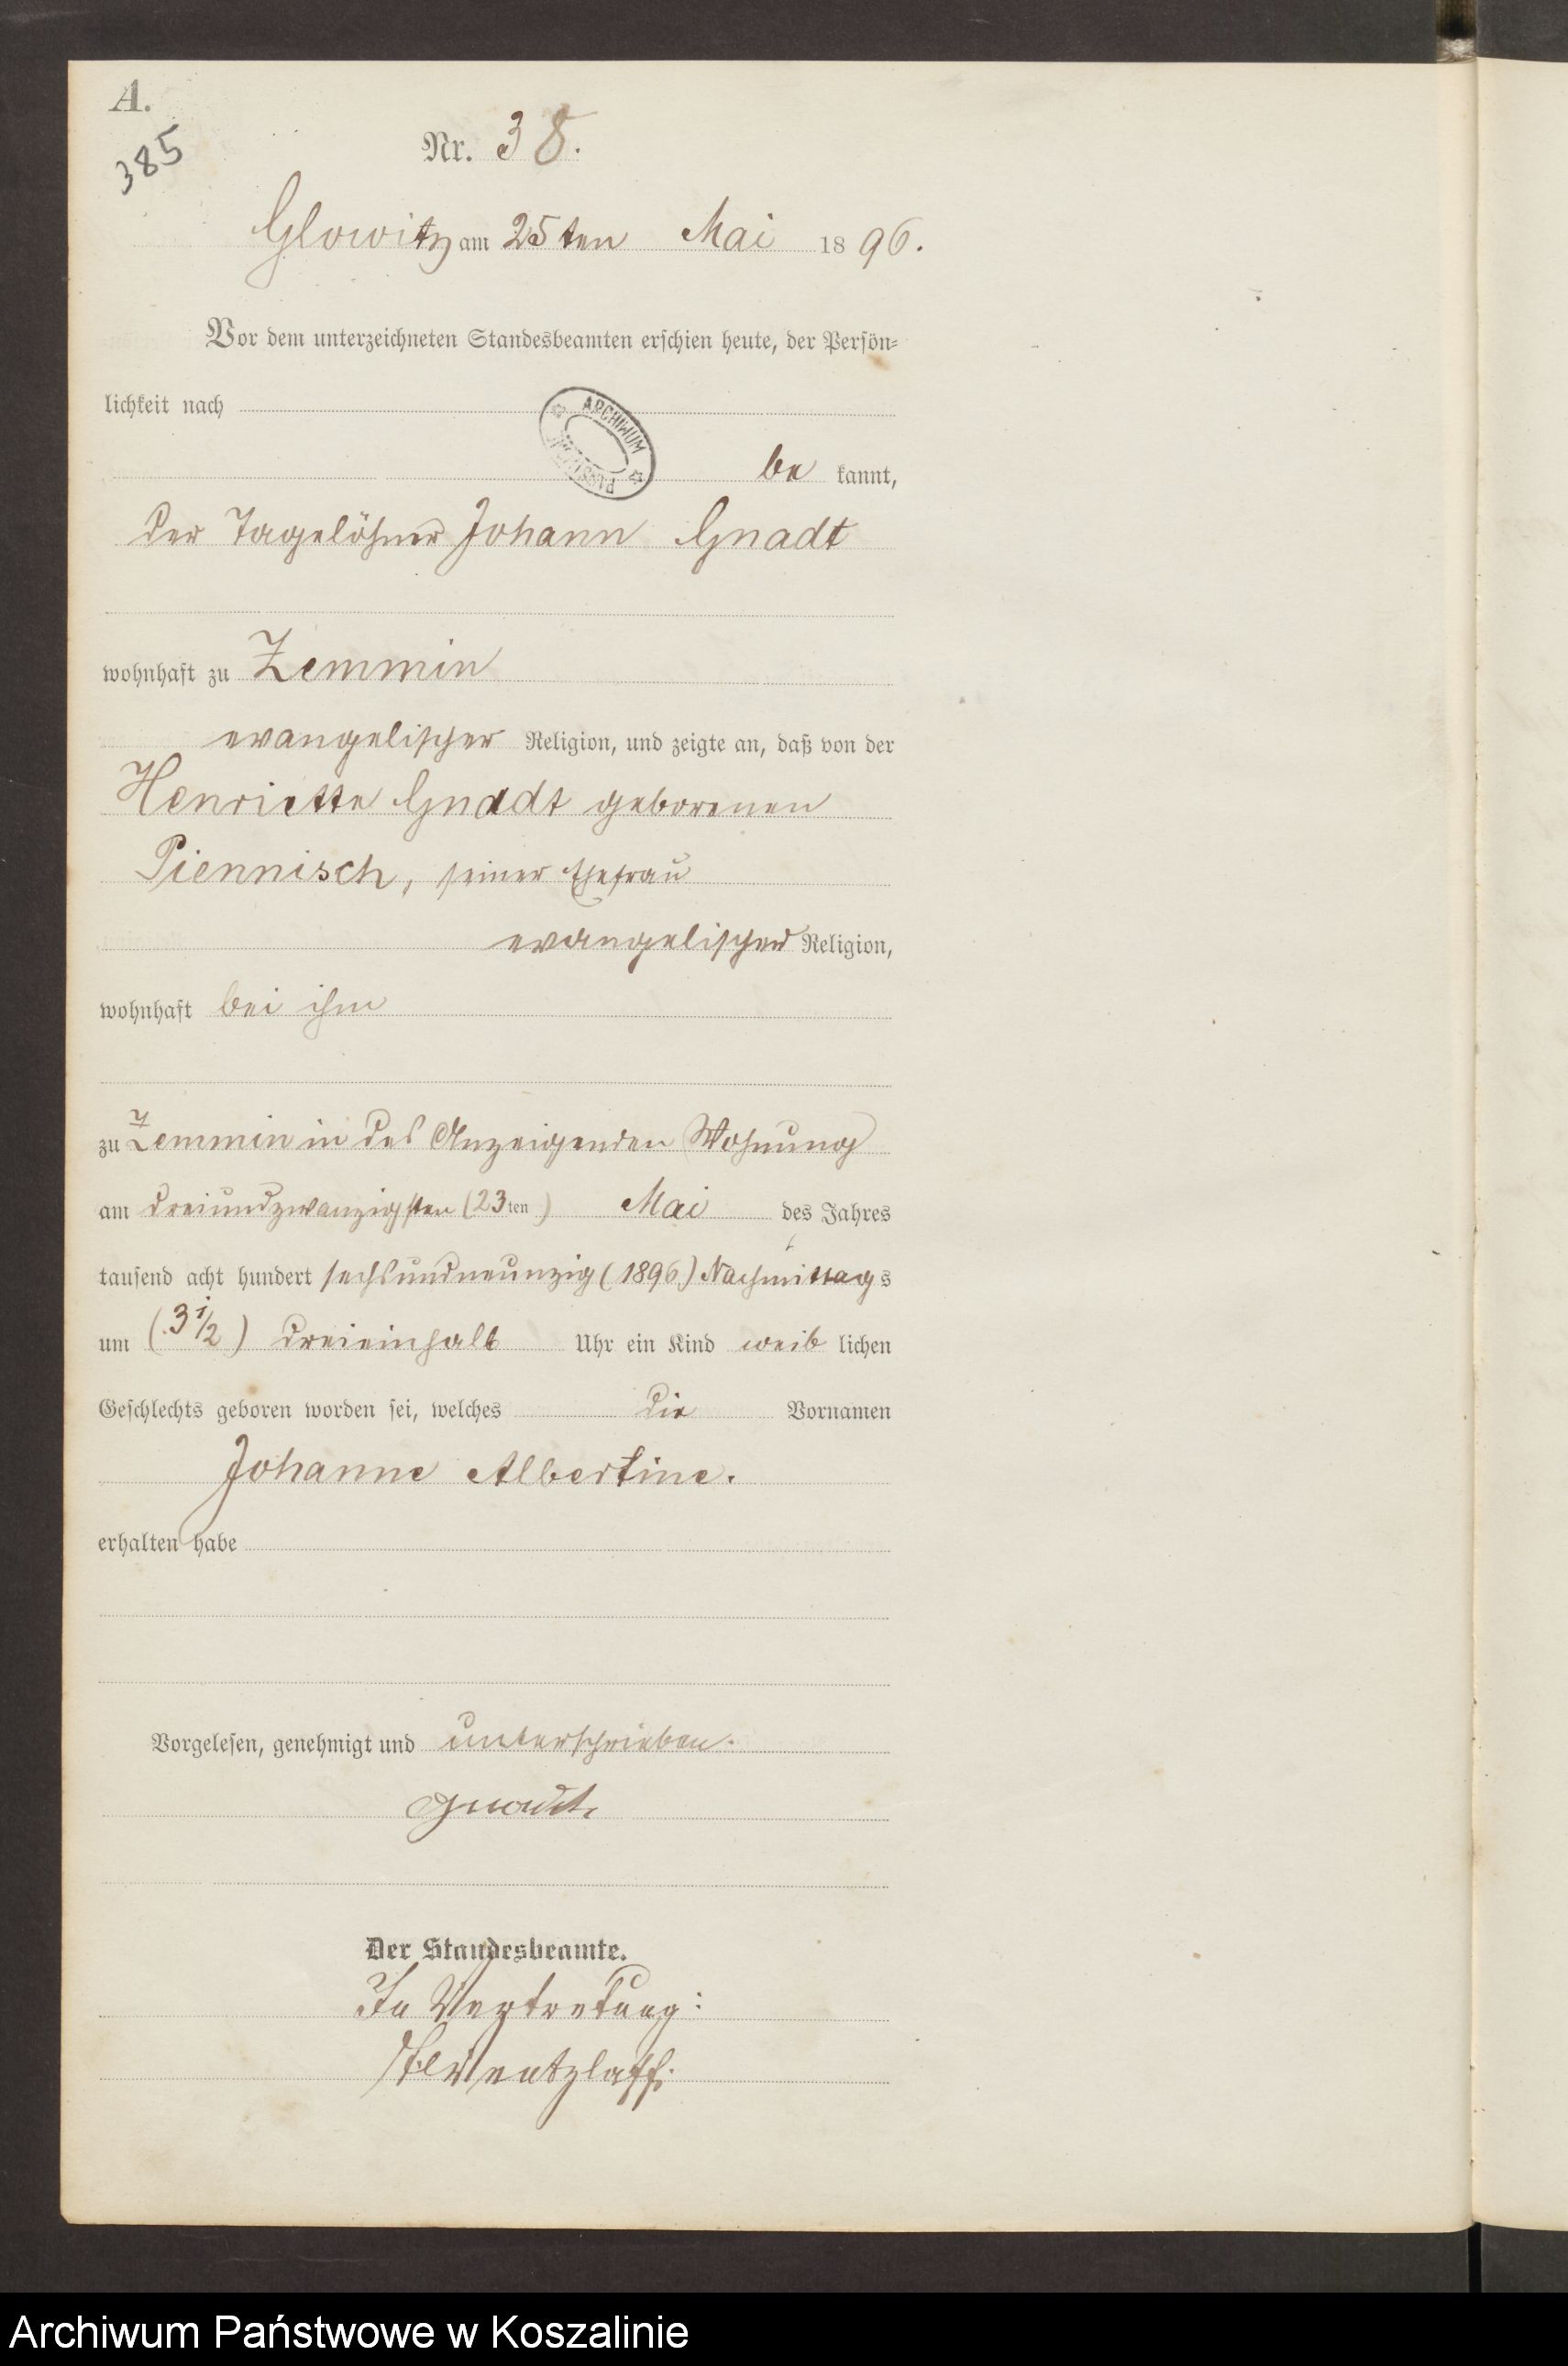 A.
385
Nr. 38.
Glowitz am 25ten Mai 1896.
Vor dem unterzeichneten Standesbeamten erschien heute, der Persön-
lichkeit nach
ARCHIWUM
be kannt,
der Tagelöhner Johann Gnadt
wohnhaft zu Zemmin
evangelischer Religion, und zeigte an, daß von der
Henriette Gnadt geborenen
Piennisch, seiner Ehefrau
evangelischer Religion,
wohnhaft bei ihm
zu Zemmin in des Anzeigenden Wohnung
am dreiundzwanzigsten (23ten) Mai des Jahres
tausend acht hundert sechsundneunzig (1896) Nachmittags
um (3 1/2) dreieinhalb Uhr ein Kind weiblichen
Geschlechts geboren worden sei, welches die Vornamen
Johanne Albertine.
erhalten habe
Vorgelesen, genehmigt und unterschrieben.
Gnadt
Der Standesbeamte.
In Vertretung:
Archiwum Państwowe w Koszalinie